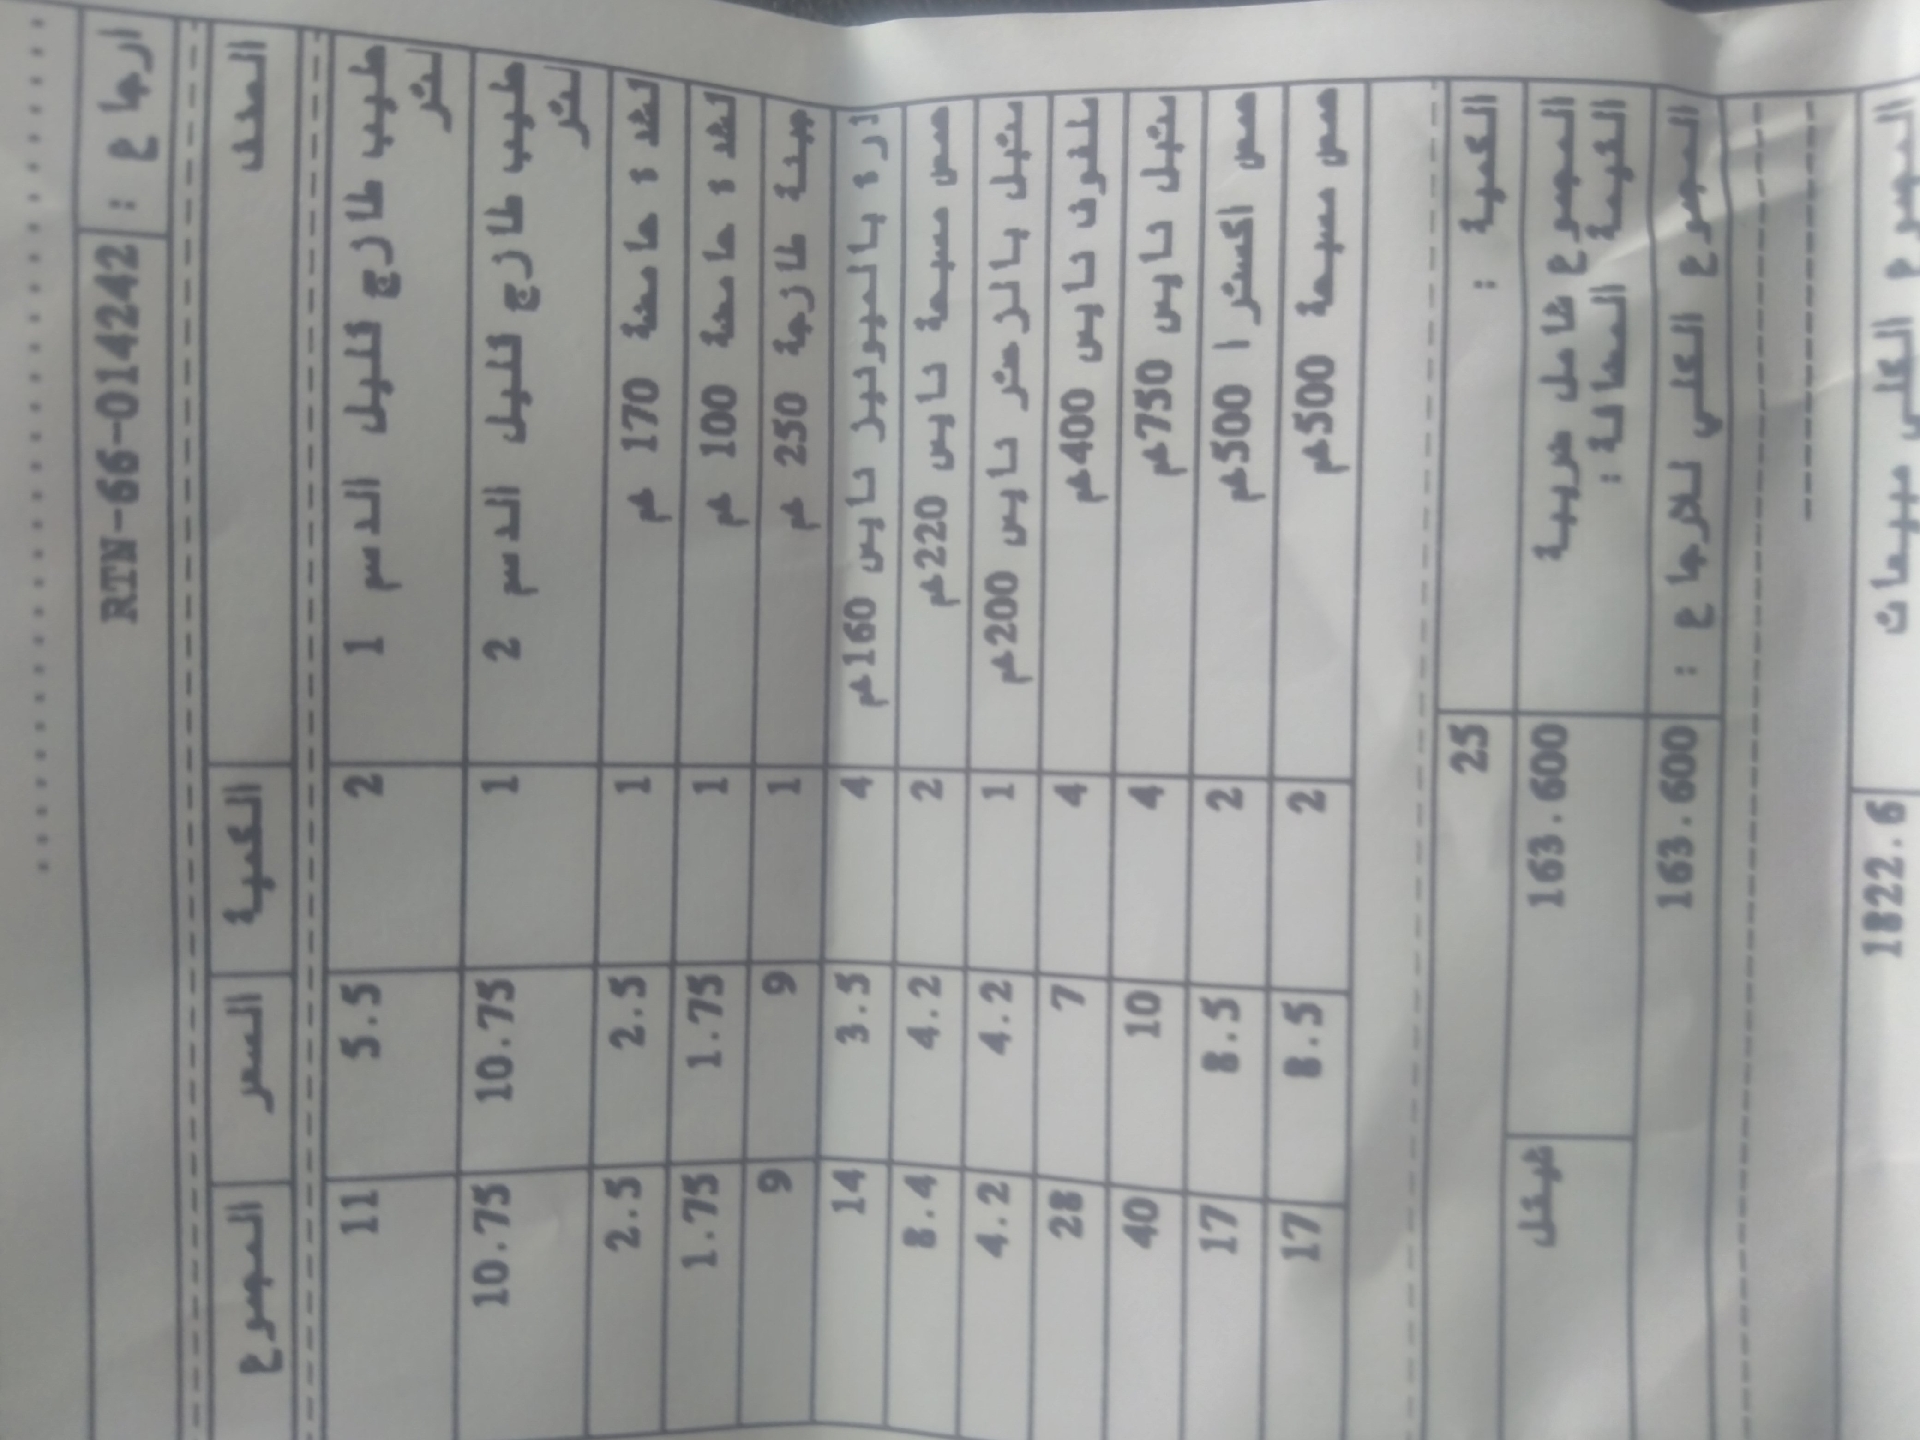 ارجاع : RTN-66-014242
الصنف الكمية السعر المجموع
حليب طازج قليل الدسم 1 لتر 2 5.5 11
حليب طازج قليل الدسم 2 لتر 1 10.75 10.75
قشدة حامضة 170 غم 1 2.5 2.5
قشدة حامضة 100 غم 1 1.75 1.75
جبنة طازجة 250 غم 1 9 9
ذرة بالميونيز نايس 160غم 4 3.5 14
حمص مسبحة نايس 220غم 2 4.2 8.4
متبل بالزعتر نايس 200غم 1 4.2 4.2
ملفوف نايس 400غم 4 7 28
متبل نايس 750غم 4 10 40
حمص اكسترا 500غم 2 8.5 17
حمص مسبحة 500غم 2 8.5 17
الكمية : 25
المجموع شامل ضريبة القيمة المضافة : 163.600 شيقل
المجموع الكلي للارجاع : 163.600
المجموع الكلي مبيعات 1822.6